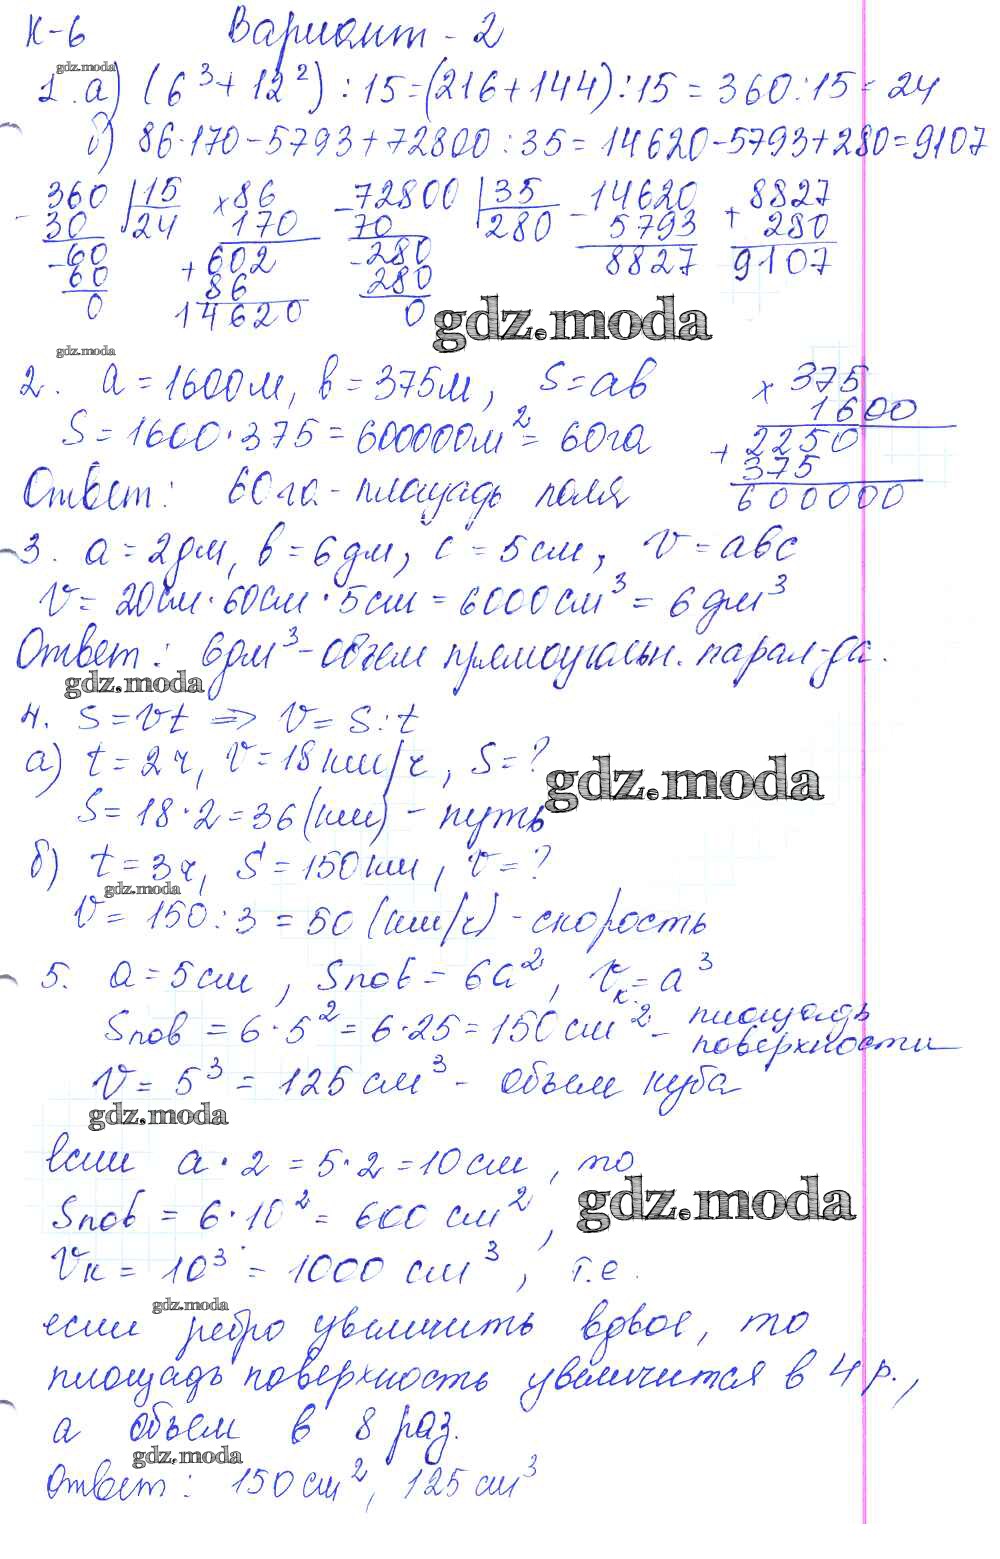 К-6 Вариант - 2
gdz.moda
1. а) (6³ + 12²) : 15 = (216 + 144) : 15 = 360 : 15 = 24
б) 86·170 - 5793 + 72800 : 35 = 14620 - 5793 + 280 = 9107
- 360 | 15 × 86 - 72800 | 35 - 14620 + 8827
30 24 170 70 280 5793 280
- 60 + 602 - 280 8827 9107
60 86 280
0 14620 0
gdz.moda
gdz.moda
2. a = 1600 м, b = 375 м, S = ab × 375
1600
S = 1600 · 375 = 600000 м² = 60 га + 2250
375
Ответ: 60 га - площадь поля 600000
3. a = 2 дм, b = 6 дм, c = 5 см, V = abc
V = 20 см · 60 см · 5 см = 6000 см³ = 6 дм³
Ответ: 6 дм³ - объем прямоугольн. парал-да.
gdz.moda
4. S = Vt => V = S : t
а) t = 2 ч, V = 18 км/ч, S = ?
gdz.moda
S = 18 · 2 = 36 (км) - путь
б) t = 3 ч, S = 150 км, V = ?
gdz.moda
V = 150 : 3 = 50 (км/ч) - скорость
5. a = 5 см, Sпов = 6a², Vк = a³
Sпов = 6 · 5² = 6 · 25 = 150 см² - площадь
поверхности
V = 5³ = 125 см³ - объем куба
gdz.moda
если a · 2 = 5 · 2 = 10 см, то
gdz.moda
Sпов = 6 · 10² = 600 см²,
Vк = 10³ = 1000 см³, т.е.
gdz.moda
если ребро увеличить вдвое, то
площадь поверхность увеличится в 4 р.,
а объем в 8 раз.
gdz.moda
Ответ: 150 см², 125 см³